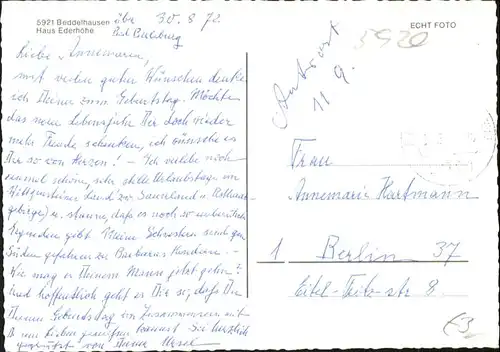 5921 Beddelhausen
Haus Ederhöhe
über 30. 8 72
Bad Berleburg
ECHT FOTO
5920
Antwort
11 9.
Liebe Annemarie,
mit vielen guten Wünschen denke
ich Deiner zum Geburtstag. Möchte
das neue Lebensjahr Dir doch wieder
mehr Freude schenken, ich wünsche es
Dir so von Herzen! – Ich verlebe noch
einmal schöne, sehr stille Urlaubstage im
Wittgensteiner Land (zw. Sauerland u. Rothaar-
gebirge) u. staune, daß es noch so unberührte
Gegenden gibt. Meine Schwestern sind gen
Süden gefahren zu Barbaras
Wie mag es Deinem Mann jetzt gehen?
Und hoffentlich geht es Dir so, daß Du
Deinen Geburtstag im Zusammensein mit
lieben kannst. Sei herzlich
gegrüßt von Deiner
Frau
Annemarie Hartmann
1 Berlin 37
Eitel-Fritz-str 8
63